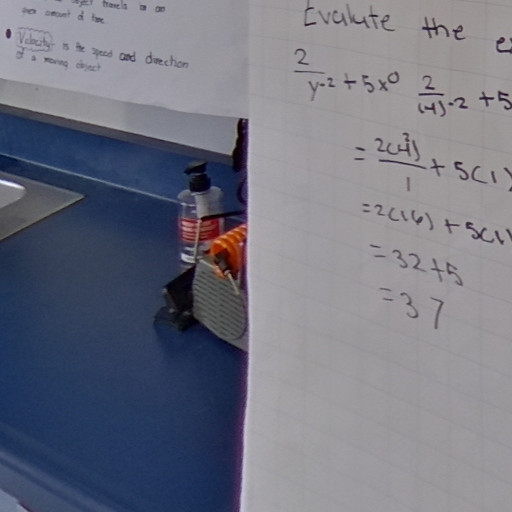 object travels in an
given amount of time.
• Velocity is the speed and direction
of a moving object
Evaluate the
2/y-2 + 5x⁰ 2/(4)-2 + 5
= 2(4²)/1 + 5(1)
= 2(16) + 5(1)
= 32+5
= 37